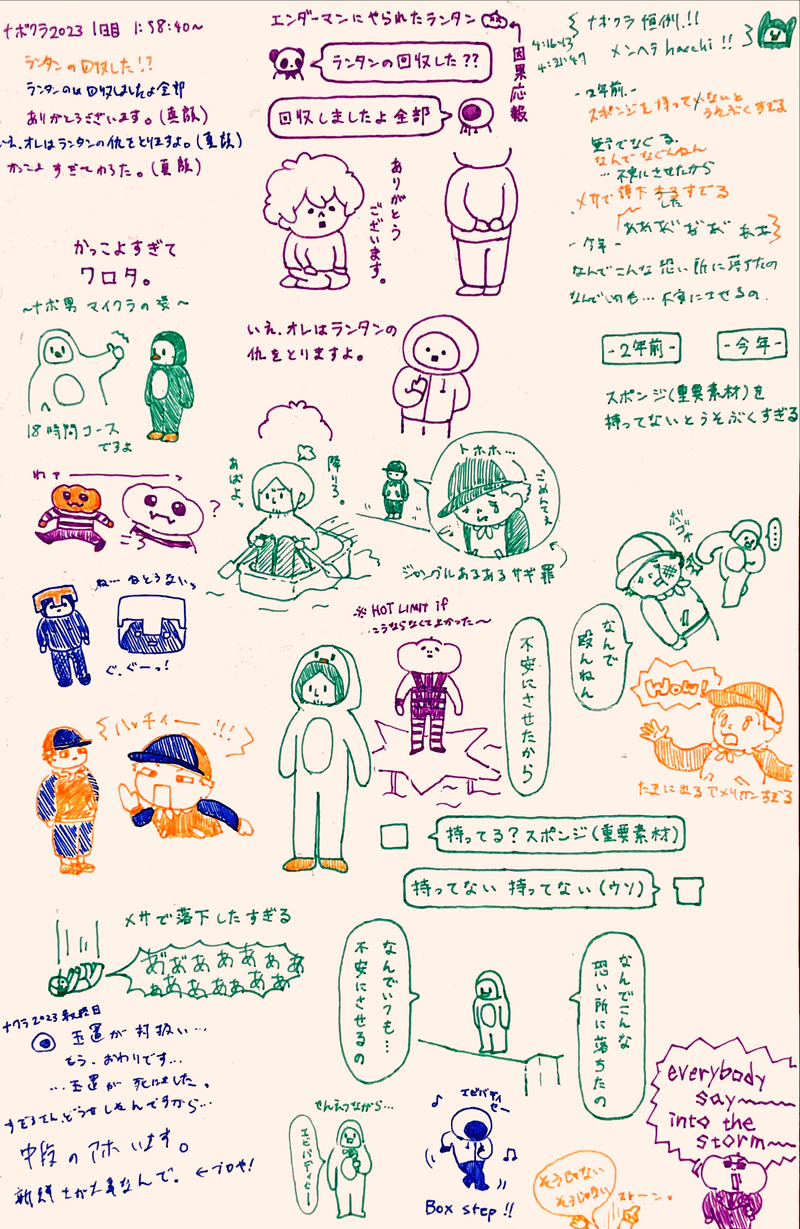 ナポクラ2023 1日目 1:58:40〜
ランタンの回収した!?
ランタンのは回収しましたよ全部
ありがとうございます。(真顔)
いえ、オレはランタンの仇をとりますよ。(真顔)
かっこよすぎてわろた。(真顔)
エンダーマンにやられたランタン
因果応報
ランタンの回収した??
回収しましたよ全部
ありがとう
ございます。
4:16:43
4:21:47
ナポクラ恒例!!
メンヘラ hacchi!!
-2年前-
なんでなぐんねん
…不安にさせたから
-今年-
なんでこんな恐い所に落ちたの
なんでいつも…不安にさせるの.
かっこよすぎて
ワロタ。
〜ナポ男 マイクラの姿〜
18時間コース
ですよ
いえ、オレはランタンの
仇をとりますよ。
-2年前-
-今年-
スポンジ(重要素材)を
持ってないとうそぶくすぎる
わァ
?
あばよっ
降りろ。
トホホ…
ごめんてぇ
ジャングルあるあるサギ罪
ボゴォ
…
なんで
殴んねん
ね…ねとうないっ
ぐ、ぐーっ!
※HOT LIMIT if
…こうならなくてよかった〜
不安にさせたから
WOW!
たまに出るアメリカンすぎる
ハッチィー!!!
持ってる?スポンジ(重要素材)
持ってない 持ってない(ウソ)
メサで落下したすぎる
あ゙あ゙ああああああ
ああああああああ
なんでいつも…
不安にさせるの
なんでこんな
恐い所に落ちたの
ナクラ2023最終日
玉置が村扱い…
もう、おわりです…
…玉置が死にました。
中段のアホいます。
←プロや!
せんえつながら…
エビバディセー
エビバディセー
Box step!!
everybody
say〜
into the
storm〜
そうじゃない
そうじゃない
ストーン。